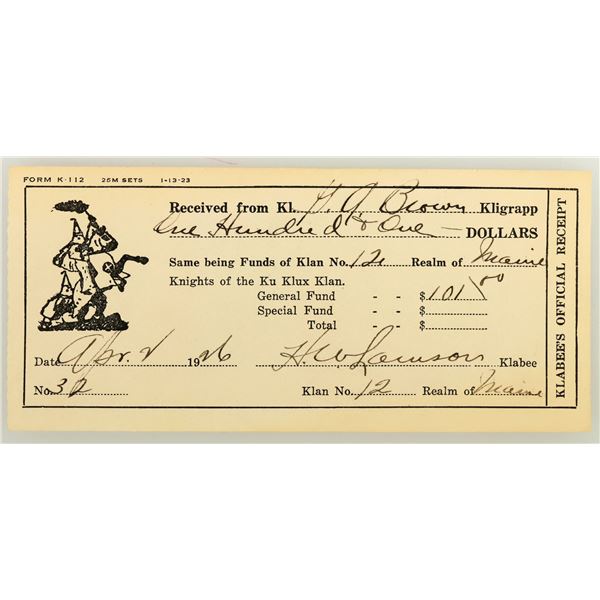 FORM K-112 25M SETS 1-13-23
Received from Kl. G. G. Brown Kligrapp
One Hundred & One — DOLLARS
Same being Funds of Klan No. 12 Realm of Maine
Knights of the Ku Klux Klan.
General Fund - - $101.00
Special Fund - - $
Total - - $
Date Apr. 2 1926 H. W. Lamson Klabee
No. 32 Klan No. 12 Realm of Maine
KLABEE'S OFFICIAL RECEIPT